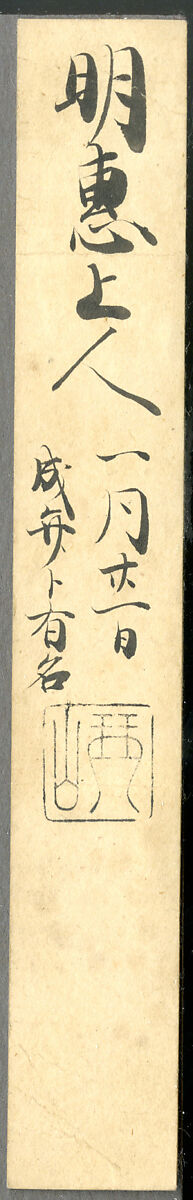 明惠上人
一月廿一日
成弁ト有名
琴山